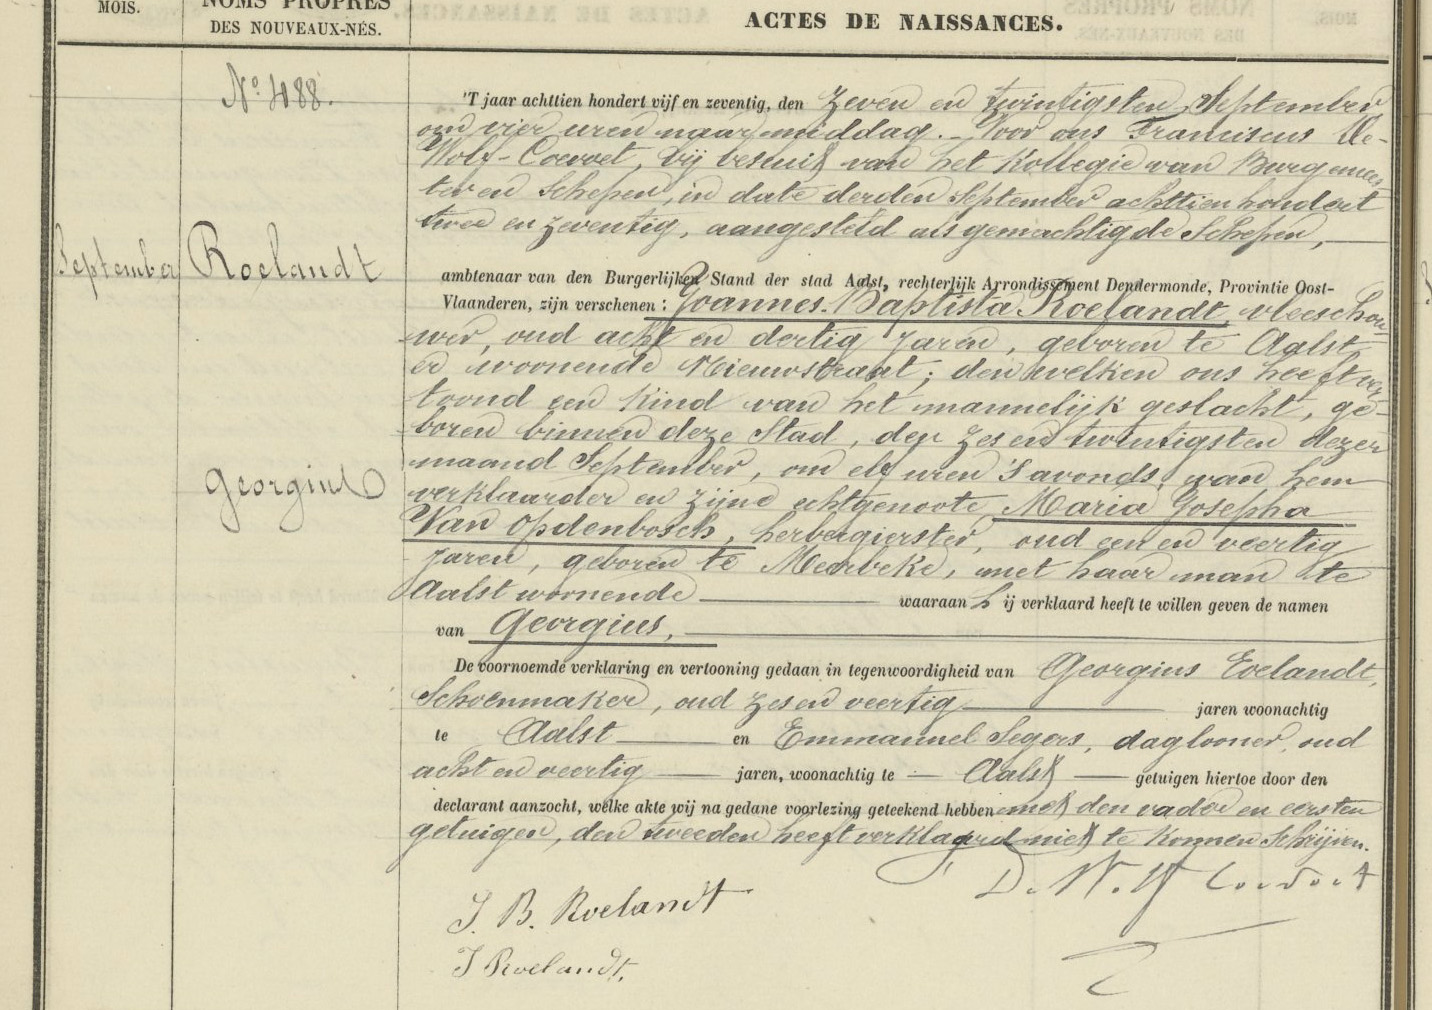 MOIS.
NOMS PROPRES
DES NOUVEAUX-NÉS.
ACTES DE NAISSANCES.
N° 488.
September
Roelandt
Georgius
'T jaar achttien hondert vijf en zeventig, den zeven en twintigsten September
om vier uren naarmiddag. Voor ons Franciscus De-
Wolf-Coevoet, bij besluit van het Kollegie van Burgemees
ter en Schepen, in date derden September achttien hondert
twee en zeventig, aangesteld als gemachtigde Schepen,
ambtenaar van den Burgerlijken Stand der stad Aalst, rechterlijk Arrondissement Dendermonde, Provintie Oost-
Vlaanderen, zijn verschenen : Joannes-Baptista Roelandt vleeschou
wer, oud acht en dertig jaren, geboren te Aalst
er woonende Nieuwstraat; den welken ons heeft ver
toond een kind van het mannelijk geslacht, ge-
boren binnen deze Stad, den zes en twintigsten dezer
maand September, om elf uren 's avonds, van hem
verklaarder en zijne echtgenoote Maria Josepha
Van Opdenbosch, herbergierster, oud een en veertig
jaren, geboren te Meerbeke, met haar man te
Aalst woonende waaraan hij verklaard heeft te willen geven de namen
van Georgius,
De voornoemde verklaring en vertooning gedaan in tegenwoordigheid van Georgius Roelandt,
Schoenmaker, oud zes en veertig jaren woonachtig
te Aalst en Emmanuel Segers, daglooner, oud
acht en veertig jaren, woonachtig te Aalst getuigen hiertoe door den
declarant aanzocht, welke akte wij na gedane voorlezing geteekend hebben met den vader en eersten
getuigen, den tweeden heeft verklaard niet te konnen Schrijven.
J. B. Roelandt
D. Wolf Coevoet
J Roelandt.